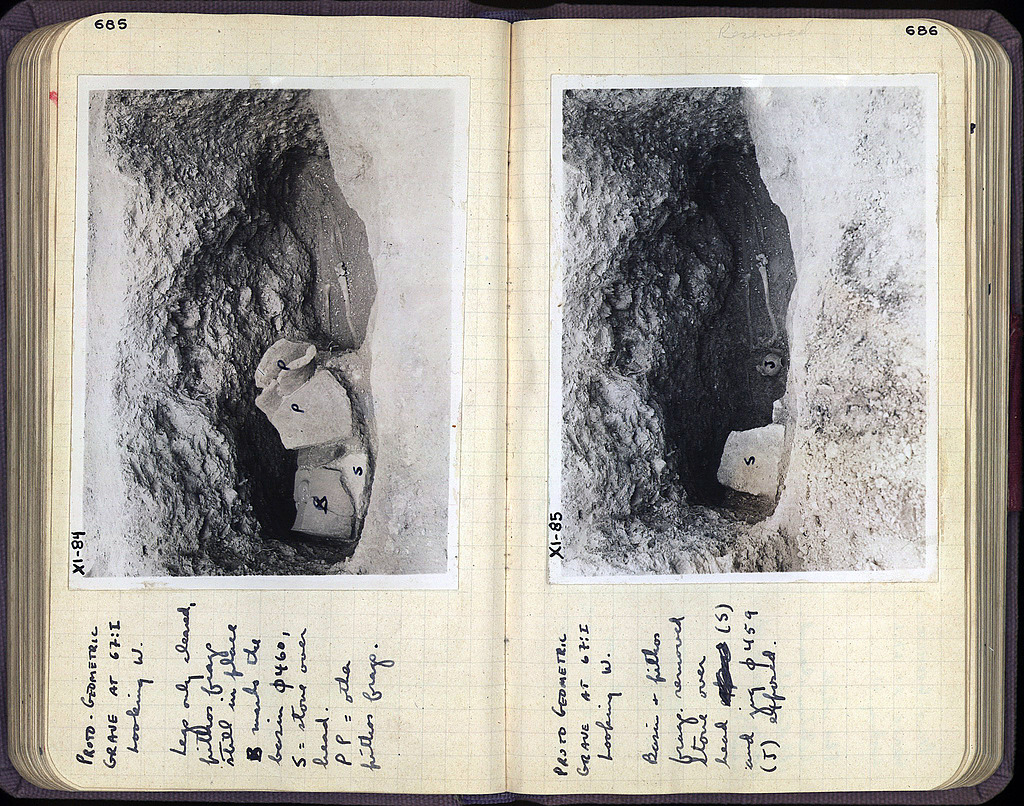 685
P
P
S
B
XI-84
PROTO-GEOMETRIC
GRAVE AT 67:I
Looking W.
Legs only cleared,
pithos frags
still in place
B marks the
basin φ460,
S = stone over
head.
P P = other
pithos frags.
686
S
J
XI-85
PROTO GEOMETRIC
GRAVE AT 67:I
Looking W.
Basin + pithos
frags. removed
Stone over
head (S)
and jug φ459
(J)